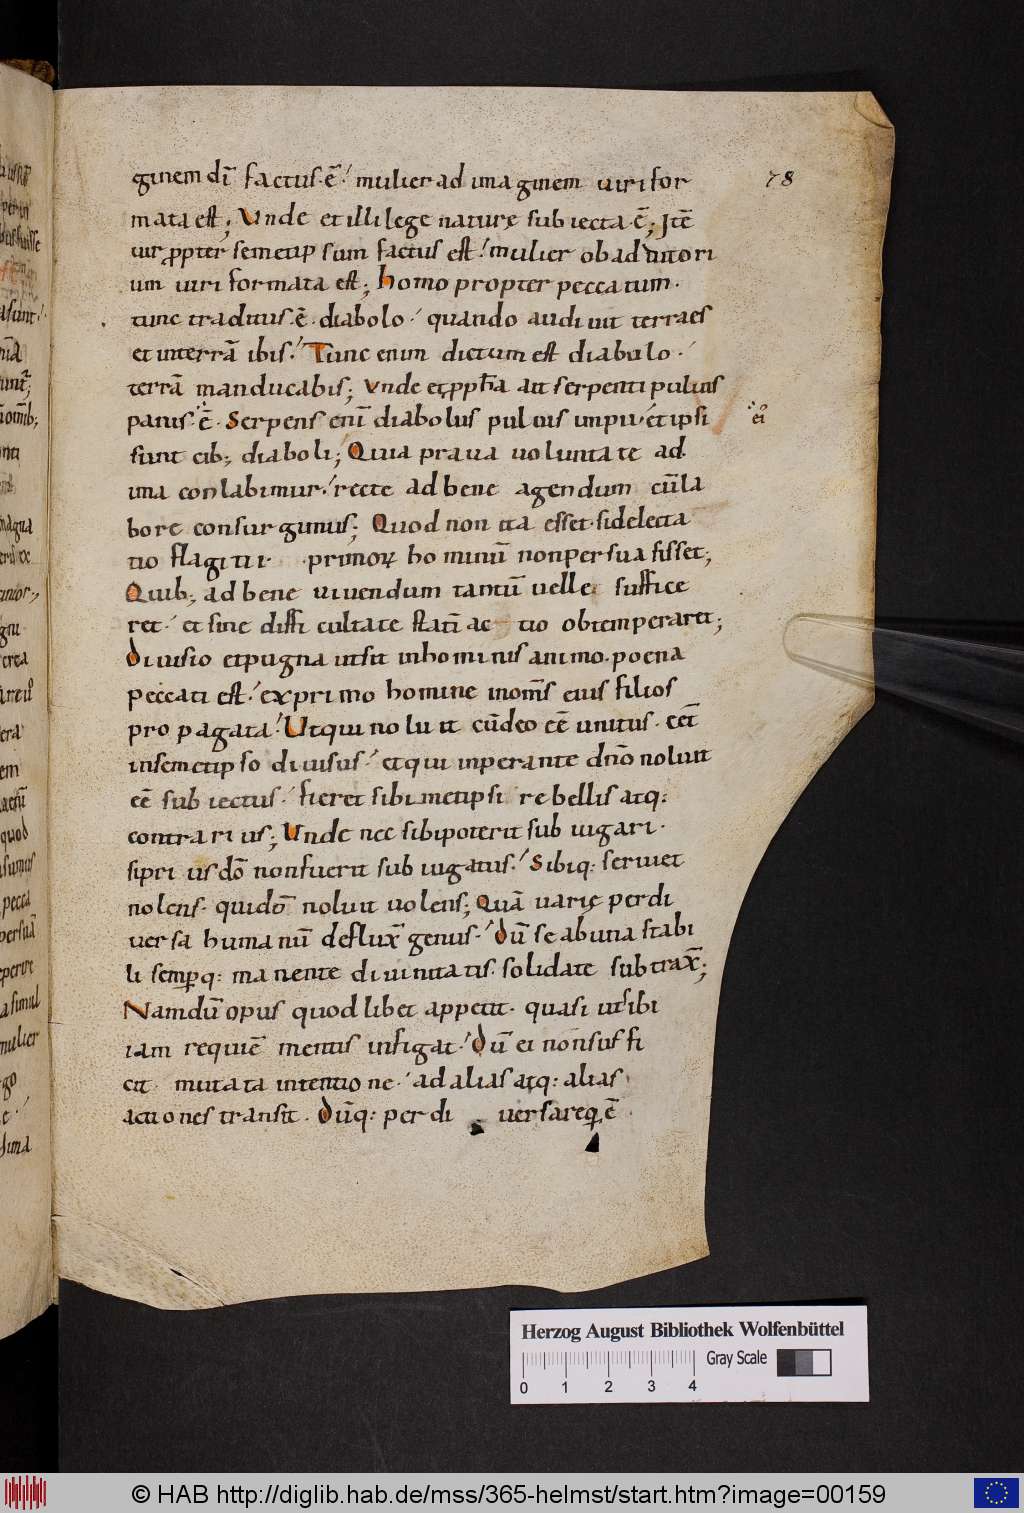 ginem dī factus·ē· mulier ad imaginem uiri for
78
mata est; Vnde et illi lege naturę subiecta·ē; Itē
uir ꝓpter semetip sum factus est· mulier ob aditori
um uiri formata est; homo propter peccatum·
tunc traditus·ē· diabolo· quando audiuit terra es
et in terrā ibis· Tunc enim dictum est diabolo·
terrā manducabis; Vnde et ꝓpħa ait serpenti puluis
panis·ē· Serpens enī diabolus puluis impii· et ipsi
ei⁹
sunt cib; diaboli; Quia praua uoluntate ad
ima conlabimur· recte ad bene agendum cū la
bore consurgimus; Quod non ita esset· si delecta
tio flagitii· primoꝝ hominū non persuasisset;
Quib; ad bene uiuendum tantū uelle suffice
ret· et sine difficultate statī actio obtemperaret;
Diuisio et pugna ut sit in hominis animo· poena
peccati est· ex primo homine in om̄s eius filios
propagata· Ut qui noluit cū deo eē unitus· eēt
in semetipso diuisus· et qui inperante dn̄o noluit
eē subiectus· fieret sibimetipsi rebellis atq:
contrarius; Vnde nec sibi poterit subiugari·
si prius dō non fuerit subiugatus· Sibiq: seruiet
nolens· qui dō noluit uolens; Quā uarię perdi
uersa humanū defluxͫ genus· dū se ab una stabi
li semꝑq: manente diuinitatis· soliditate subtraxͫ;
Nam dū opus quodlibet appetit· quasi ut sibi
iam requiē mentis infigat· dū ei non suffi
cit mutata intentione· ad alias atq: alias
actiones transit· Dūq: per diuersa reqͥē
Herzog August Bibliothek Wolfenbüttel
Gray Scale
0 1 2 3 4
© HAB http://diglib.hab.de/mss/365-helmst/start.htm?image=00159